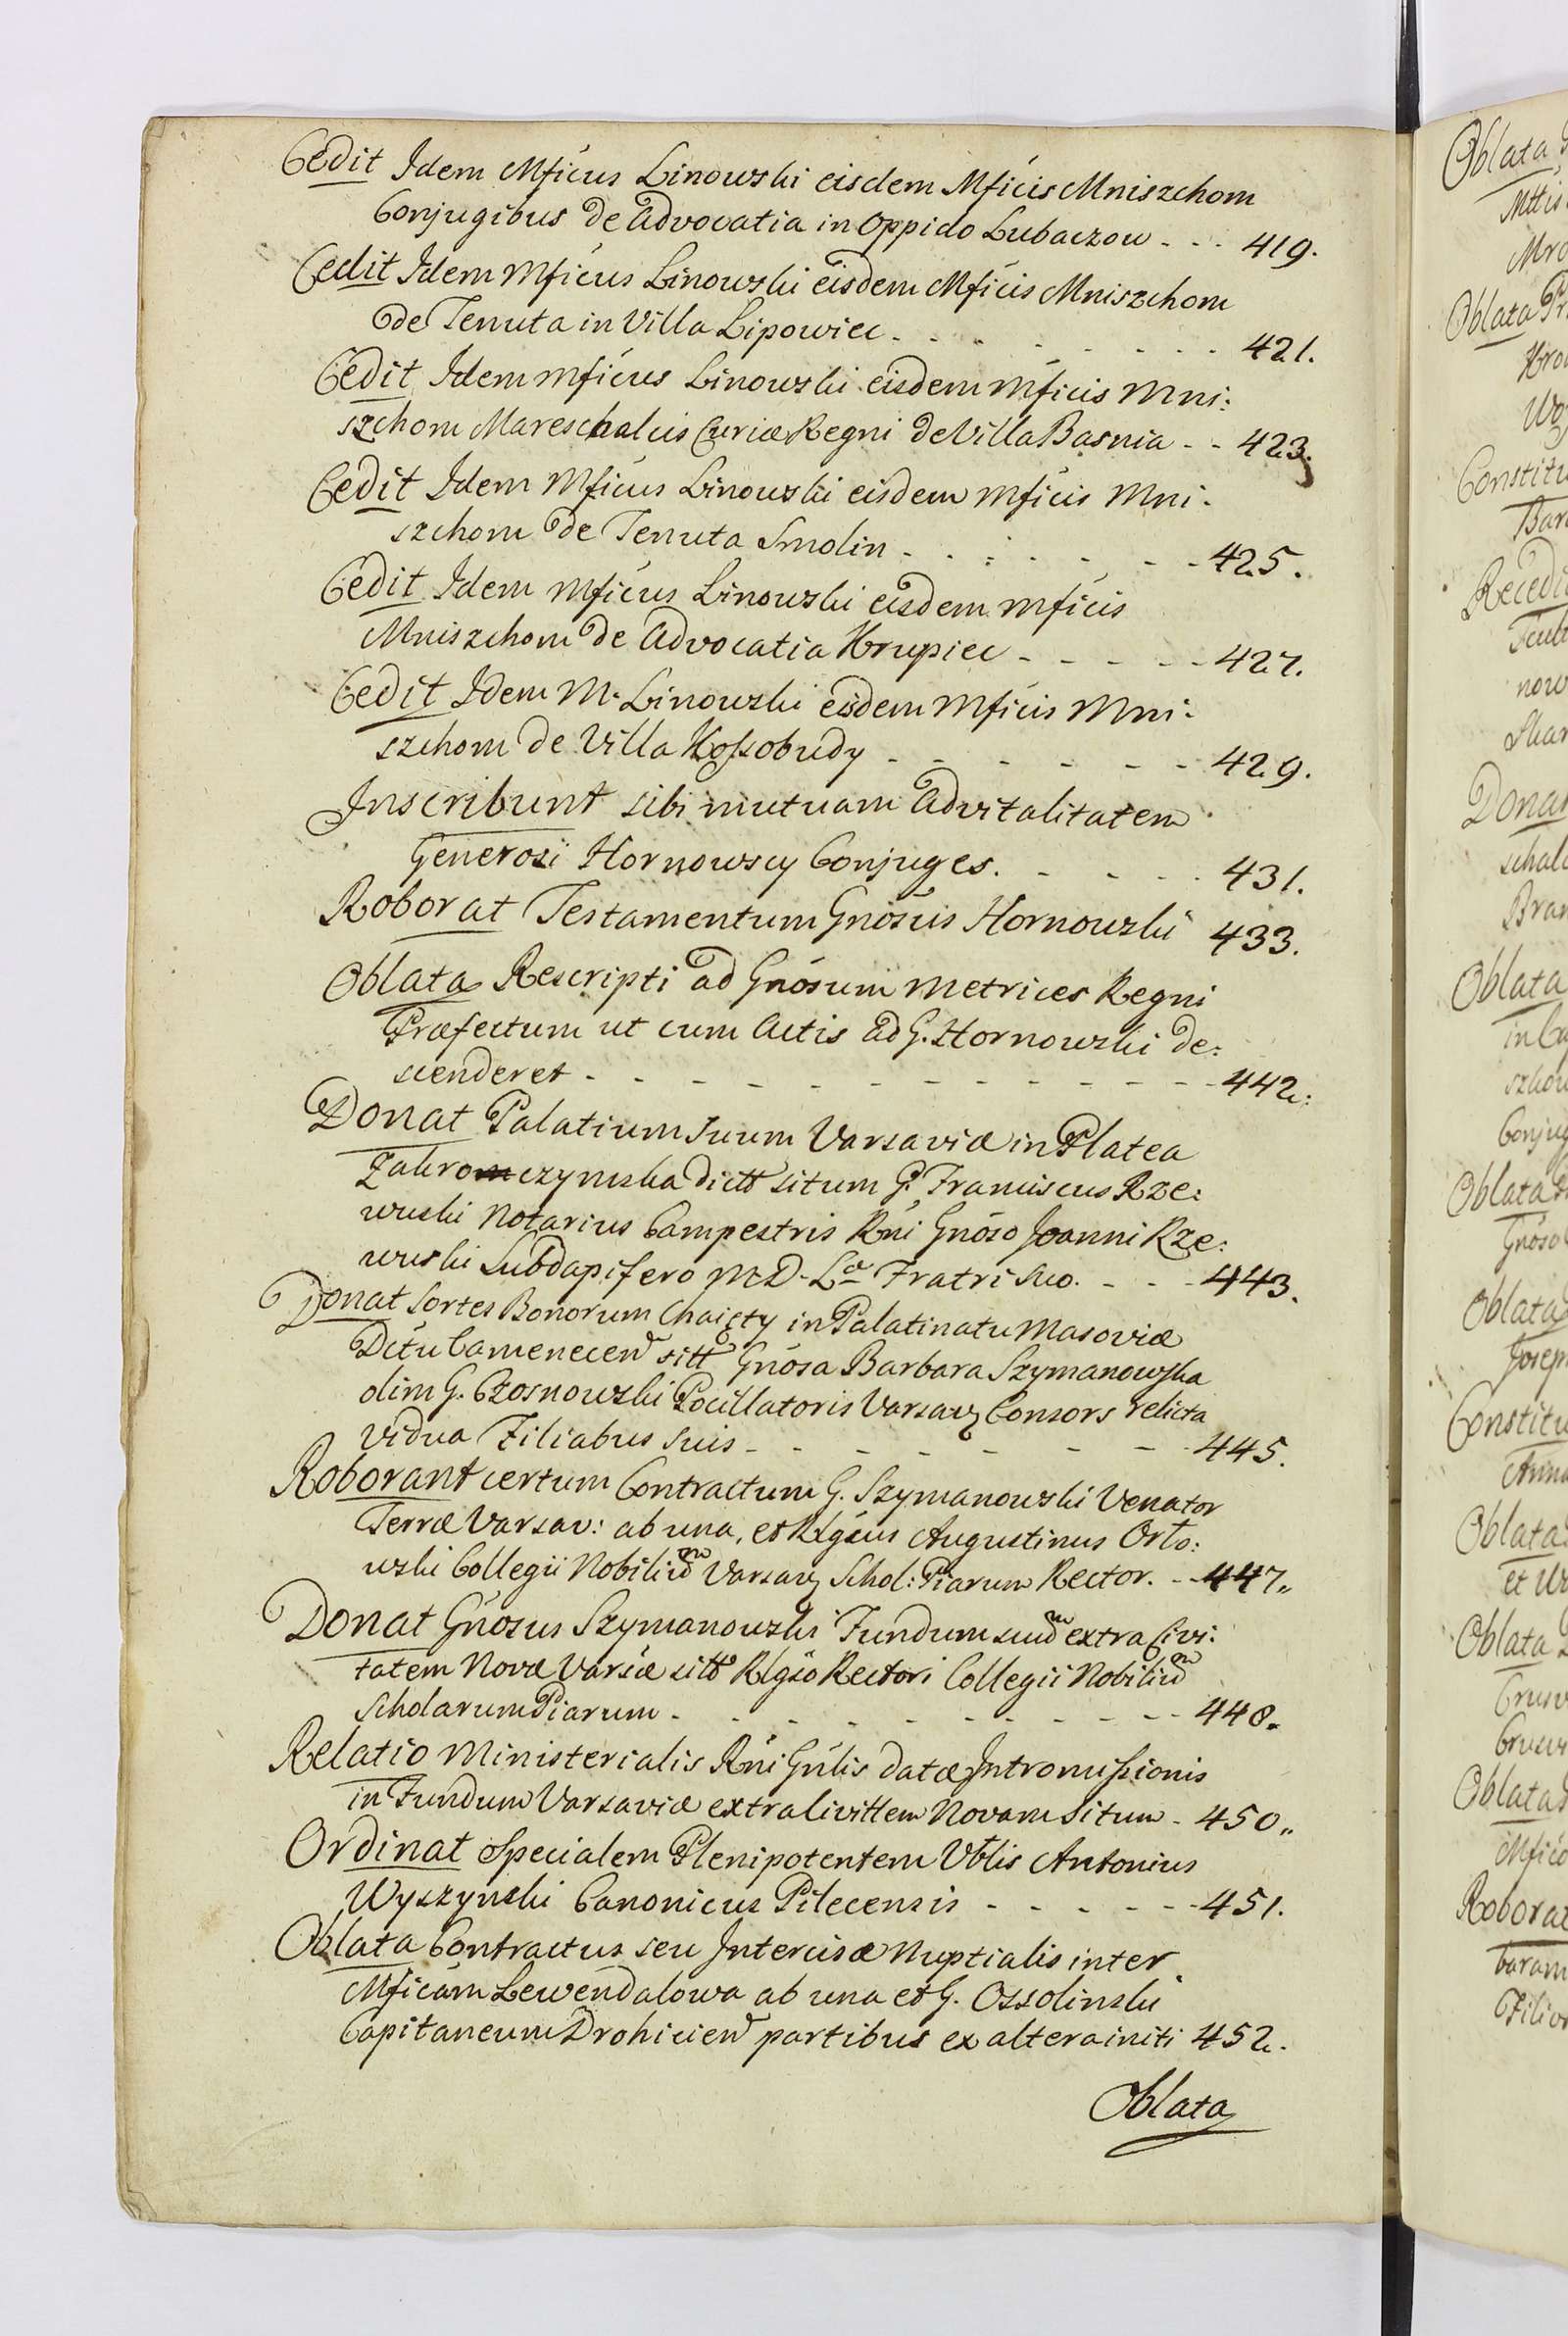 Cedit Idem Mficus Linowski eisdem Mficis Mniszchom
Conjugibus de Advocatia in Oppido Lubaczow - - - 419.
Cedit Idem Mficus Linowski eisdem Mficis Mniszchom
de Tenuta in Villa Lipowiec - - - - - - - 421.
Cedit Idem Mficus Linowski eisdem Mficis Mni:
szchom Mareschalcis Curiæ Regni de Villa Basnia - - 423.
Cedit Idem Mficus Linowski eisdem Mficis Mni:
szchom de Tenuta Smolin - - - - - - - 425.
Cedit Idem Mficus Linowski eisdem Mficis
Mniszchom de Advocatia Krupiec - - - - - 427.
Cedit Idem M. Linowski eisdem Mficis Mni:
szchom de Villa Kossobudy - - - - - - 429.
Inscribunt sibi mutuam Advitalitatem
Generosi Hornowscy Conjuges. - - - - 431.
Roborat Testamentum Gnosus Hornowski 433.
Oblata Rescripti ad Gnosum Metrices Regni
Præfectum ut cum Actis ad G. Hornowski de:
scenderet - - - - - - - - - - - - 442.
Donat Palatium suum Varsaviæ in Platea
Zakroczymska dictt situm G. Franciscus Rze:
wuski Notarius Campestris Rni Gnoso Joanni Rze:
wuski Subdapifero M. D. L. Fratri suo. - - - 443.
Donat Sortes Bonorum Chaięty in Palatinatu Masoviæ
Dctu Camenecen sitt Gnosa Barbara Szymanowska
olim G. Czosnowski Pocillatoris Varsav Consors relicta
Vidua Filiabus suis - - - - - - - - 445.
Roborant certum Contractum G. Szymanowski Venator
Terræ Varsav: ab una, et Rlgsus Augustinus Orło:
wski Collegii Nobilium Varsav Schol: Piarum Rector. - - 447.
Donat Gnosus Szymanowski Fundum suum extra Civi:
tatem Novæ Varsæ sitt Rlgso Rectori Collegii Nobilium
Scholarum Piarum - - - - - - - - - - 448.
Relatio Ministerialis Rni Gnlis datæ Intromissionis
in Fundum Varsaviæ extra Civittem Novam situm - 450.
Ordinat specialem Plenipotentem Vblis Antonius
Wyszynski Canonicus Pilecensis - - - - - 451.
Oblata Contractus seu Intercisæ Nuptialis inter
Mficam Lewendalowa ab una et G. Ossolinski
Capitaneum Drohicien partibus ex altera initi 452.
Oblata